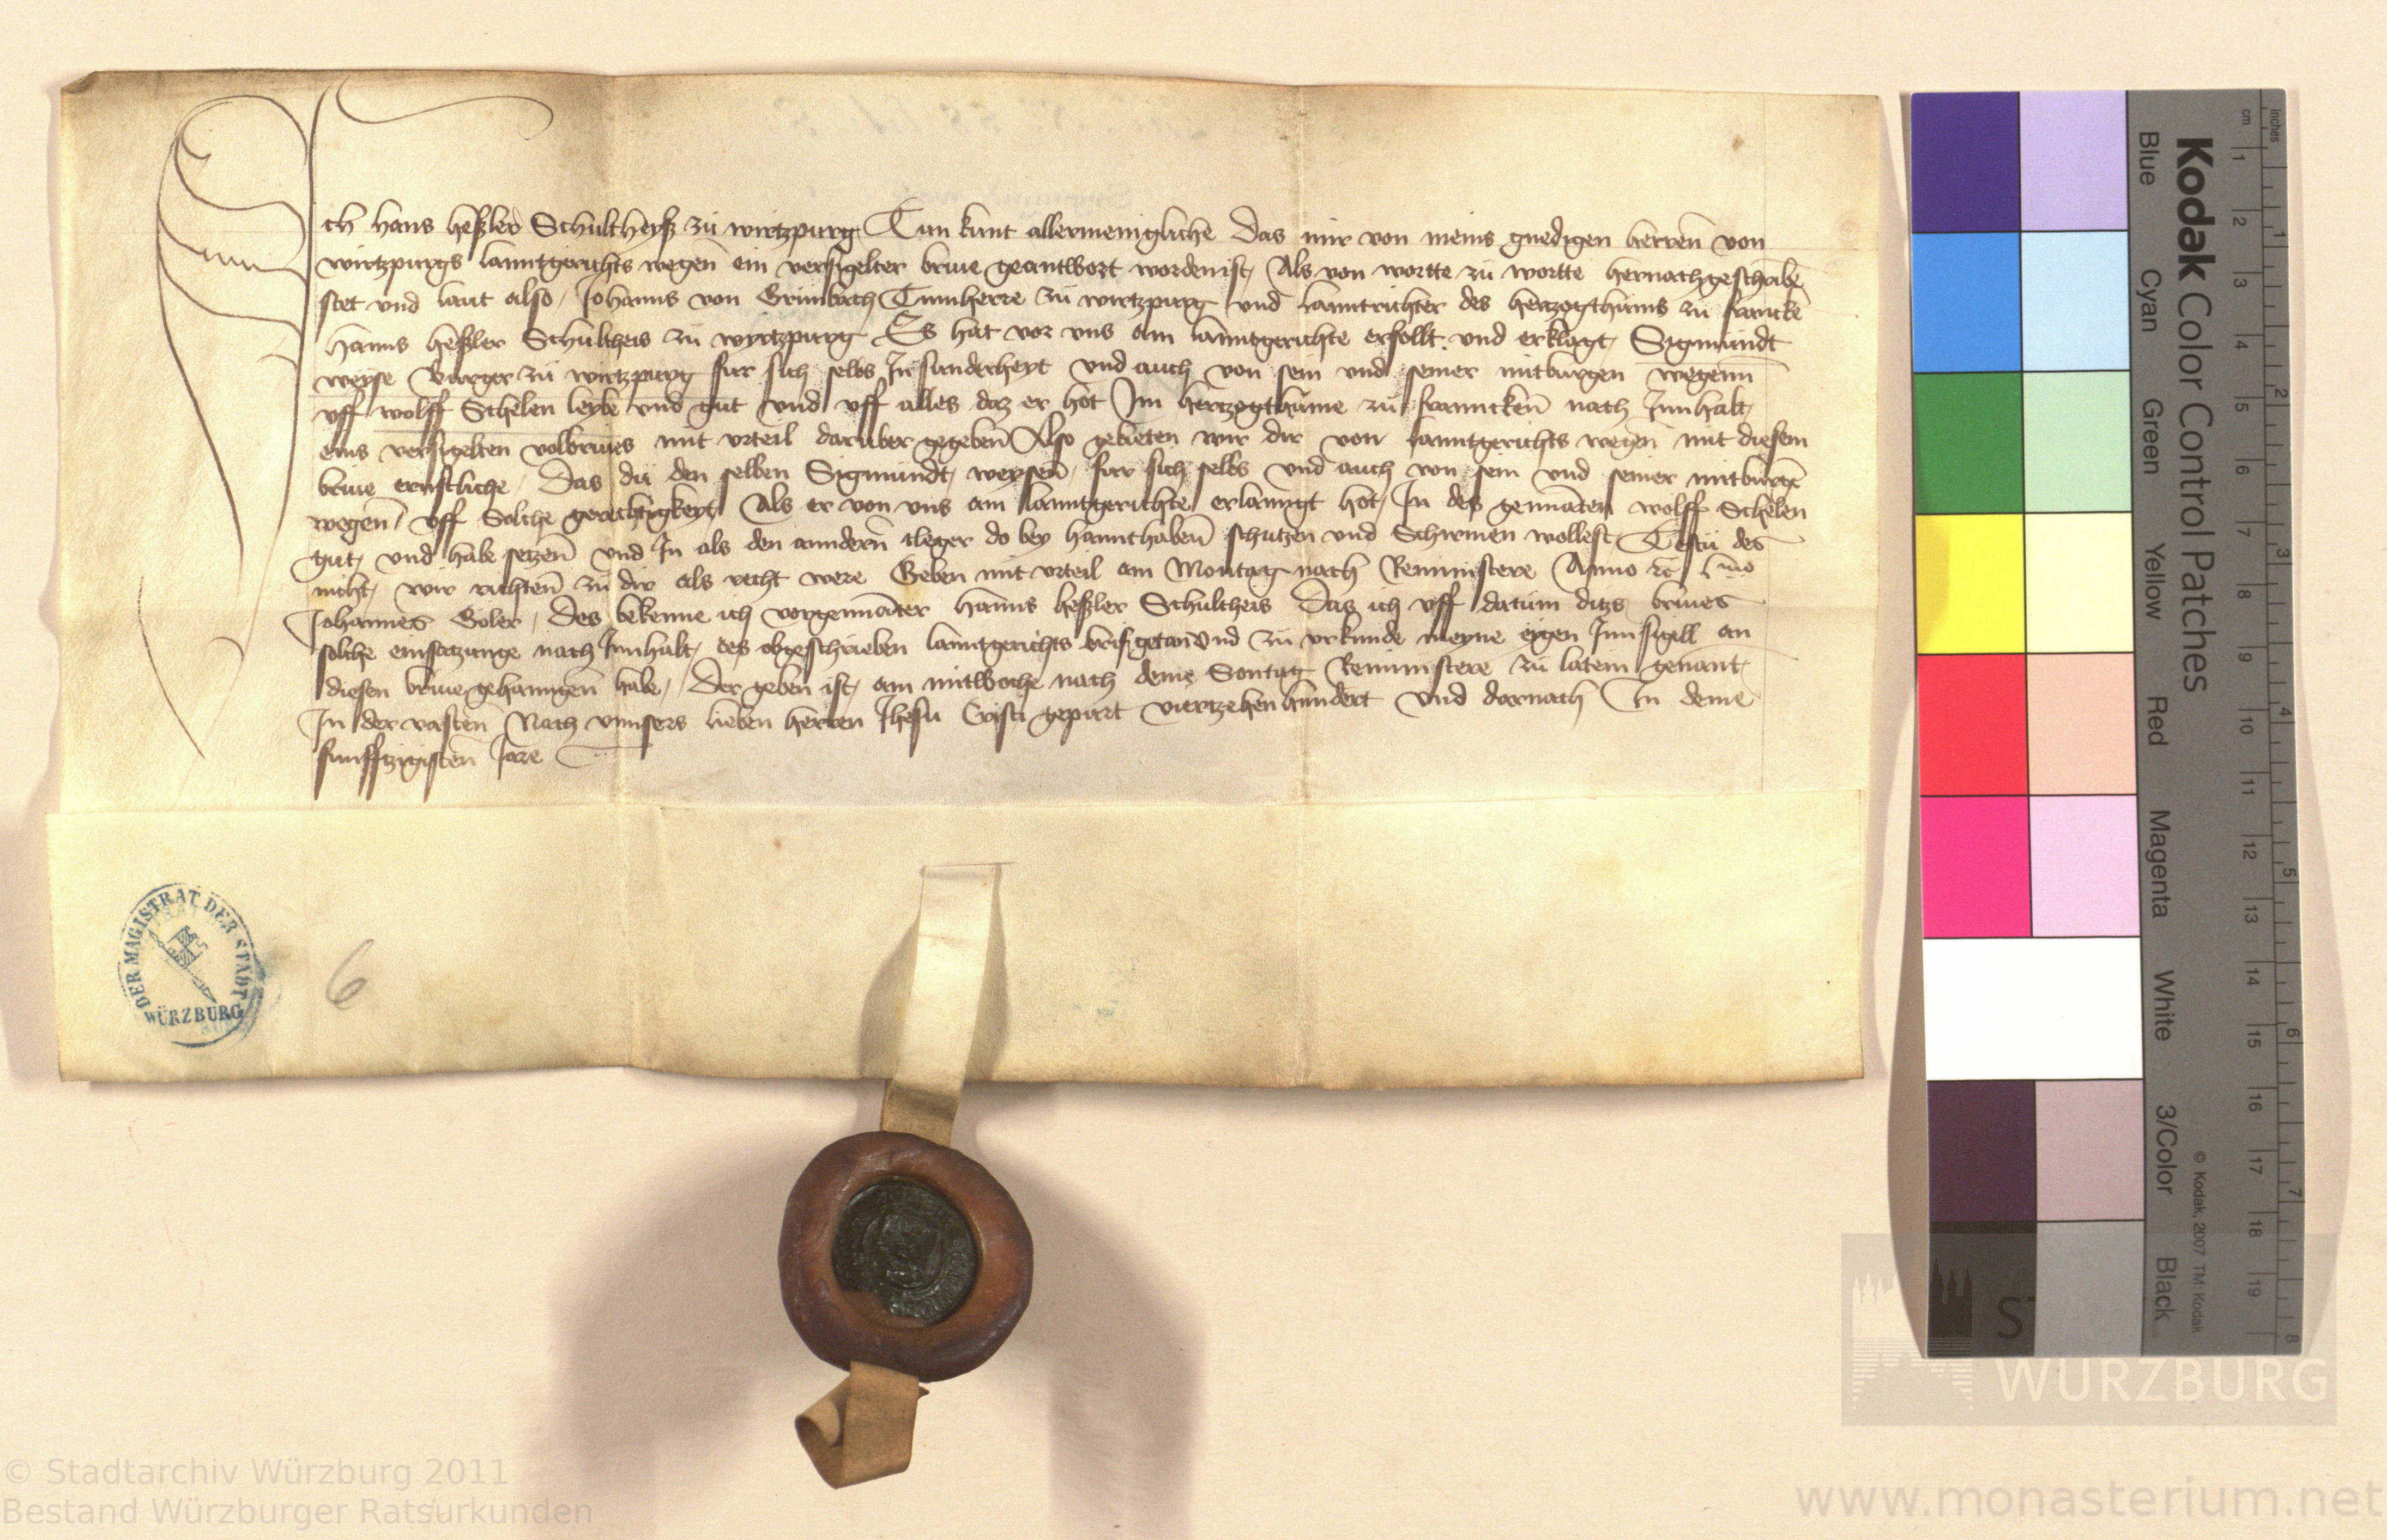 Ich Hans Heßler Schultheyß zu wirtzpurg Tun kunt allermeniglichē Das mir von meins gnedigen herren von
wirtzpurgs lanntgerichts wegen ein versigelter briue geantwort worden ist, Als von wortte zu wortte hernachgeschribē
stet vnd laut also, Johanns von Grunbach Tumherre zu wirtzpurg vnd lanntrichter des hertzogthums zu franckē
Hanns heßler Schultheis zu wyrtzpurg Es hat vor vns am lanntgerichte erfollt vnd erklagt, Sigmundt
weyse Burger zu wirtzpurg fur sich selbs Jn sunderheyt vnd auch von sein vnd seiner mitburgen wegenn
vff wolff Schelen leybe vnd gut vnd vff alles daz er hot Jm hertzogthume zu franncken nach Jnnhalt,
eins versigelten volbriues mit vrteil daruber gegeben Also gebieten wir dir von lanntgerichts wegen mit diesem
briue ernstliche, Das du den selben Sigmundt, weysen, fur sich selbs vnd auch von sein vnd seiner mitburgē
wegen, vff Solche gerechtigkeyt, Als er von vns am lanntgerichte erlanngt hot, Jn des gennāten wolff Schelen
gut, vnd habe setzen vnd Jn als den anndern cleger do bey hannthaben schutzen vnd Schirmen wollest Testu des
nicht, wir richten zu dir als recht were Geben mit vrteil am Montag nach Reministere Anno rc Lmo
Johannes Goler, Des bekenne ich vorgennāter Hanns heßler Schultheis Das ich vff datum ditzs briues
solche einsatzunge nach Jnnhalt, des obgeschrieben lanntgerichts brifs getan Vnd zu vrkunde meyne eigen Jnnsigell an
diesen briue gehanngen habe, Der geben ist, am mitwoche nach deme Sontag Reministere zu latein genant,
Jn der vasten Nach vnnsers lieben herren Jhesu Cristi gepurt viertzehenhundert vnd dornach Jn deme
funfftzigisten Jare
DER MAGISTRAT DER STADT
WÜRZBURG
6
Kodak Color Control Patches
Blue Cyan Green Yellow Red Magenta White 3/Color Black
© Kodak, 2007 TM: Kodak
inches 1 2 3 4 5 6 7 8
cm 1 2 3 4 5 6 7 8 9 10 11 12 13 14 15 16 17 18 19
WÜRZBURG
© Stadtarchiv Würzburg 2011
Bestand Würzburger Ratsurkunden
www.monasterium.net